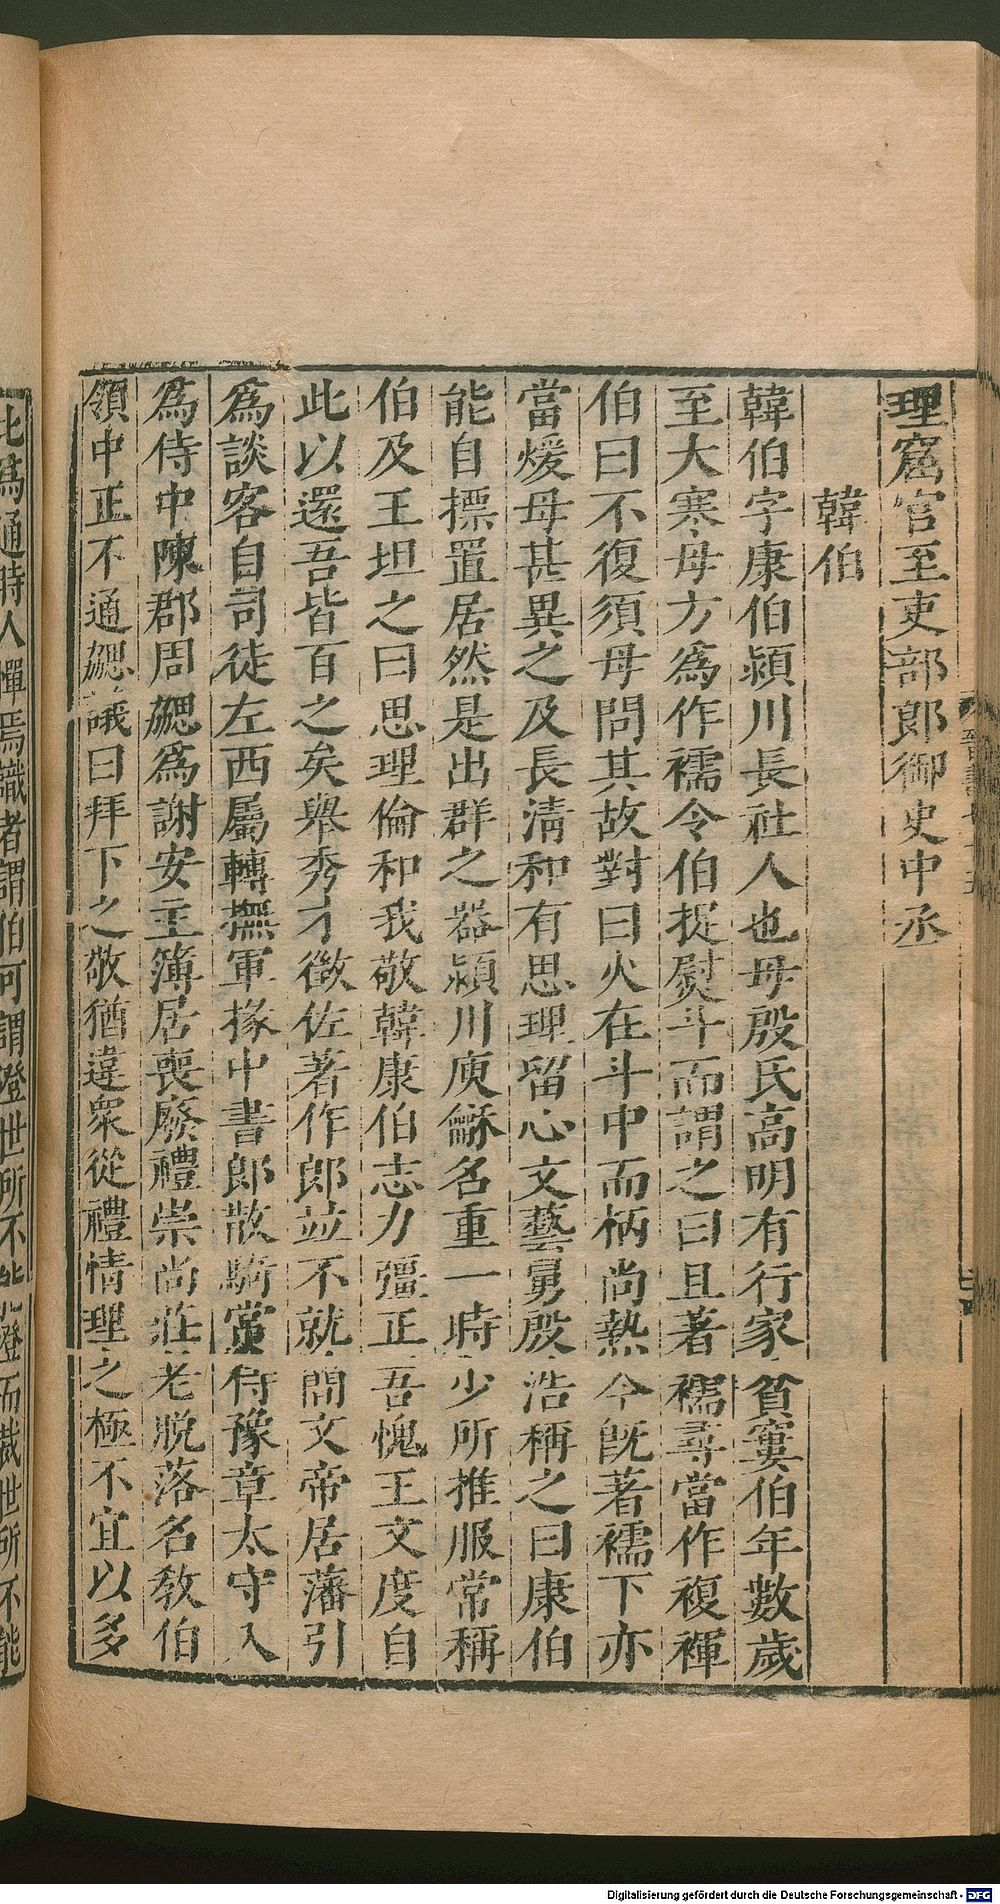 理窟官至吏部郎御史中丞
韓伯
韓伯字康伯潁川長社人也母殷氏高明有行家貧窶伯年數歲
至大寒母方爲作襦令伯捉熨斗而謂之曰且著襦尋當作複褌
伯曰不復須母問其故對曰火在斗中而柄尚熱今旣著襦下亦
當煖母甚異之及長清和有思理留心文藝舅殷浩稱之曰康伯
能自摽置居然是出群之器潁川庾龢名重一時少所推服常稱
伯及王坦之曰思理倫和我敬韓康伯志力彊正吾愧王文度自
此以還吾皆百之矣舉秀才徵佐著作郎並不就簡文帝居藩引
爲談客自司徒左西屬轉撫軍掾中書郎散騎常侍豫章太守入
爲侍中陳郡周勰爲謝安主簿居喪廢禮崇尚莊老脫落名教伯
領中正不通勰議曰拜下之敬猶違衆從禮情理之極不宜以多
此爲通時人憚焉識者謂伯可謂澄世所不能澄而裁世所不能
Digitalisierung gefördert durch die Deutsche Forschungsgemeinschaft - DFG